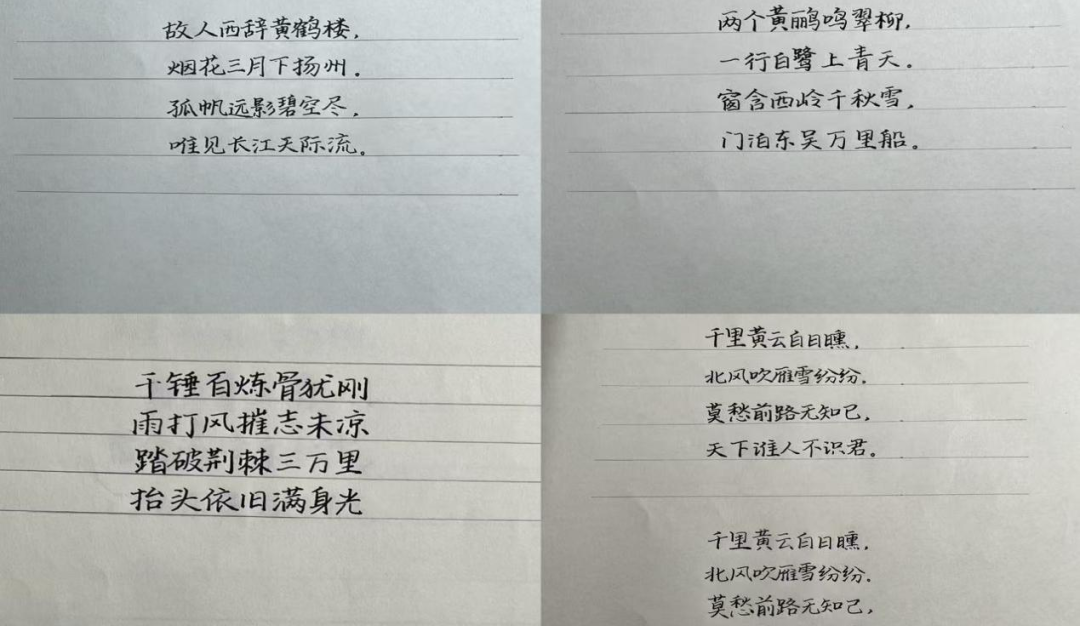 故人西辞黄鹤楼,
烟花三月下扬州.
孤帆远影碧空尽,
唯见长江天际流.
两个黄鹂鸣翠柳,
一行白鹭上青天.
窗含西岭千秋雪,
门泊东吴万里船.
千锤百炼骨犹刚
雨打风摧志未凉
踏破荆棘三万里
抬头依旧满身光
千里黄云白日曛,
北风吹雁雪纷纷.
莫愁前路无知己,
天下谁人不识君.
千里黄云白日曛,
北风吹雁雪纷纷.
莫愁前路无知己,